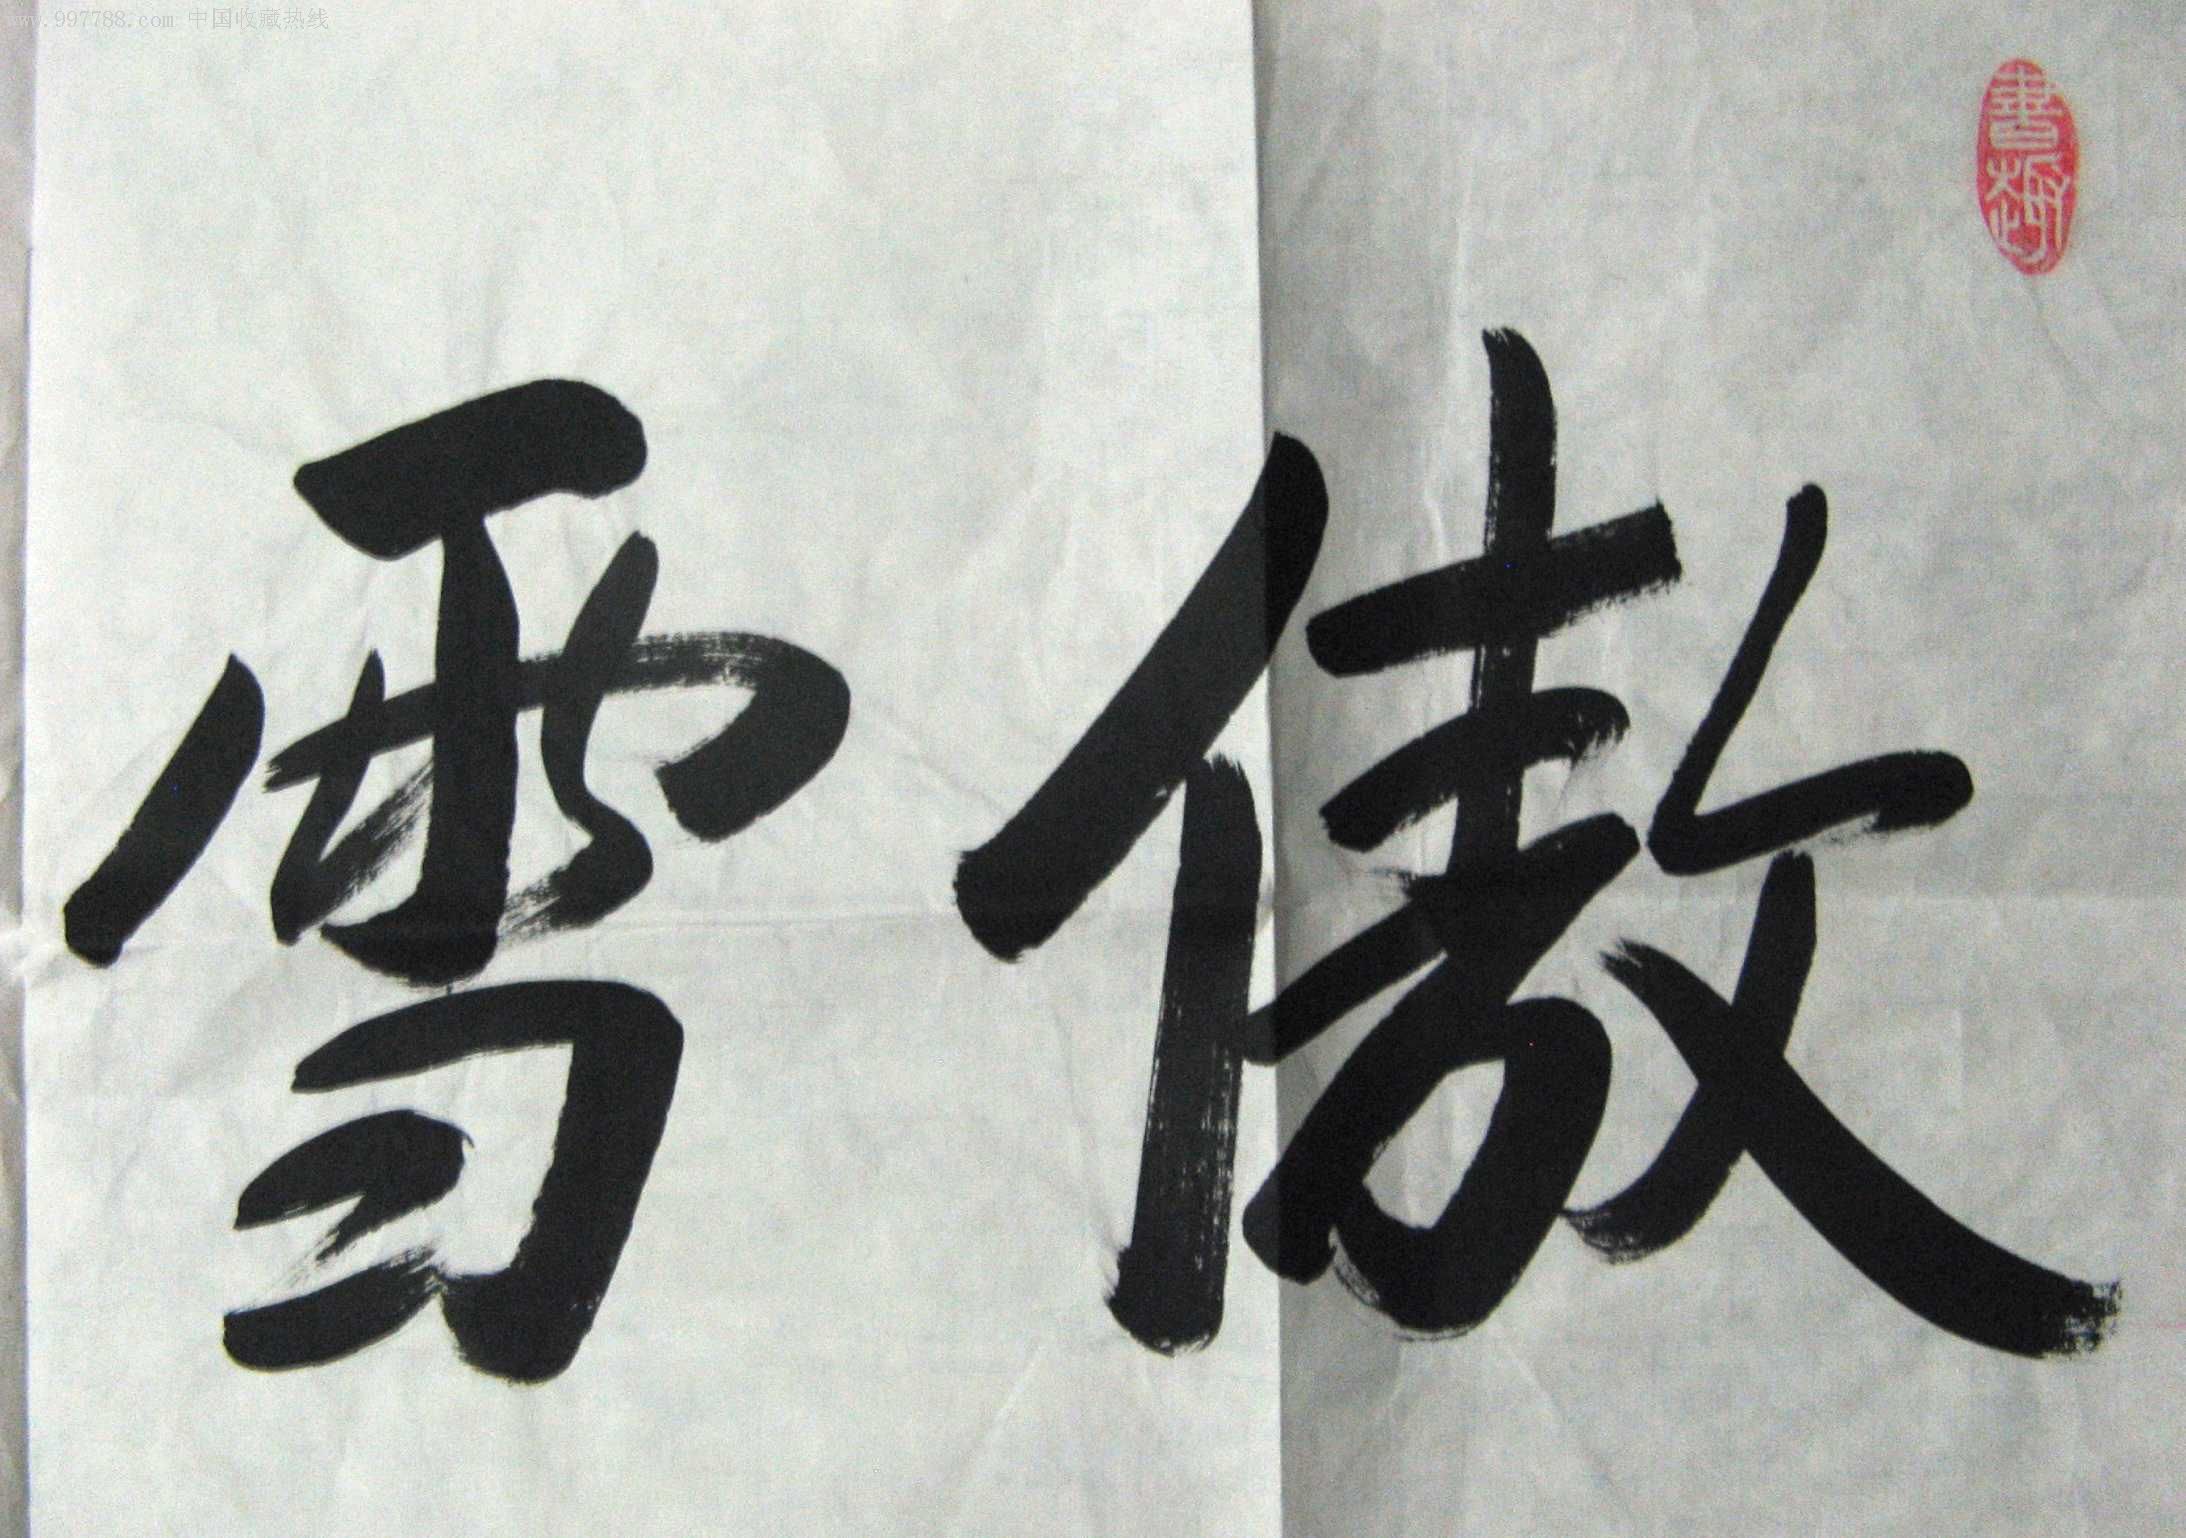 www.997788.com 中国收藏热线
傲雪